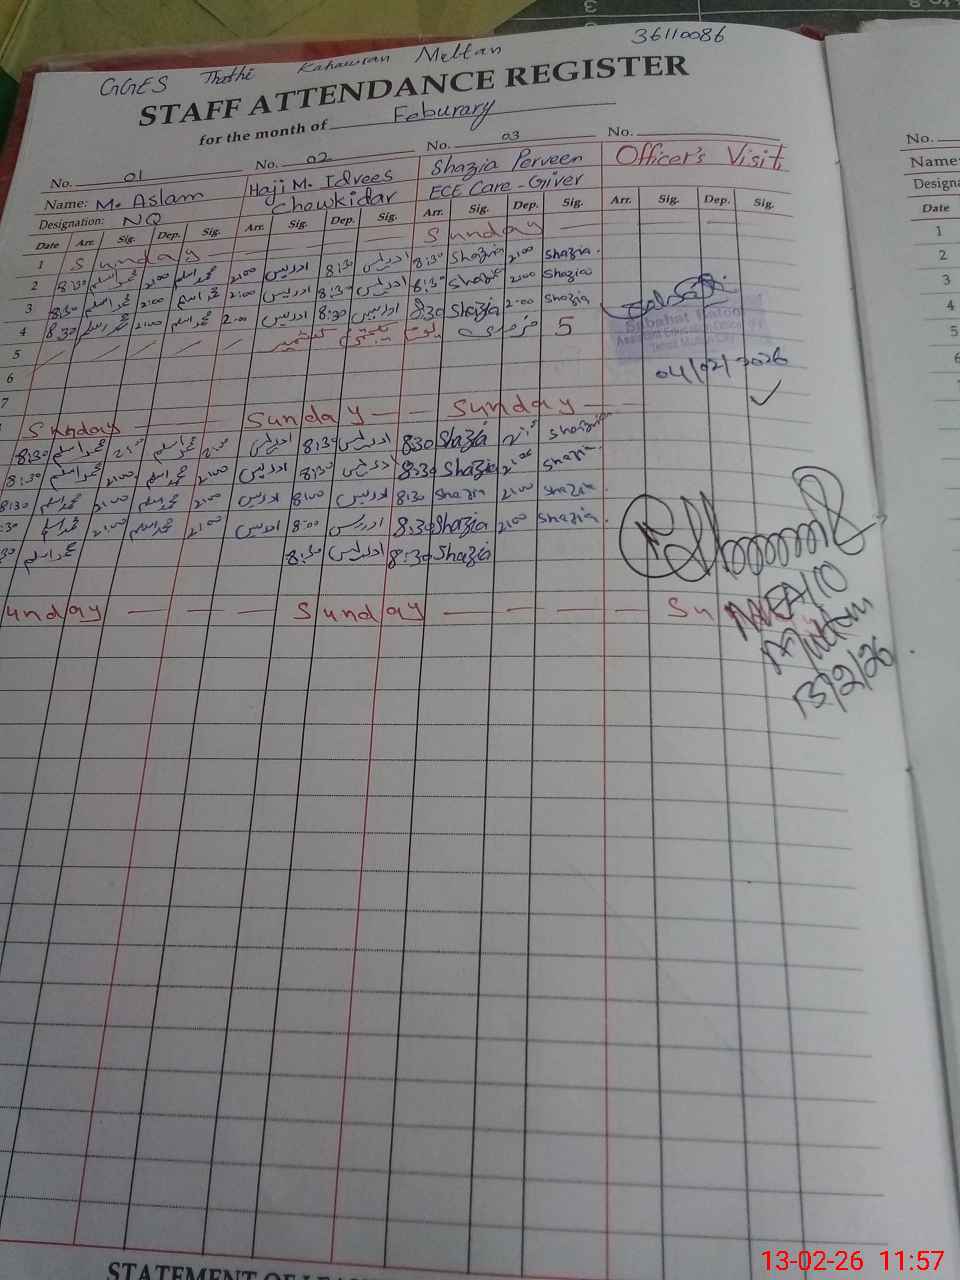 GGES Thothi Kahawran Meltan 36110086
STAFF ATTENDANCE REGISTER
for the month of Feburary
No. 01 No. 02 No. 03 No.
Name: M. Aslam Haji M. Idrees Shazia Perveen Officer's Visit
Designation: NQ Chowkidar ECE Care-Giver
Date Arr. Sig. Dep. Sig. Arr. Sig. Dep. Sig. Arr. Sig. Dep. Sig. Arr. Sig. Dep. Sig.
1 Sunday Sunday
2 8:30 محمد اسلم 2:00 محمد اسلم 2:00 ادریس 8:30 ادریس 8:30 Shazia 2:00 Shazia
3 8:30 محمد اسلم 2:00 محمد اسلم 2:00 ادریس 8:30 ادریس 8:30 Shazia 2:00 Shazia
4 8:30 محمد اسلم 2:00 محمد اسلم 2:00 ادریس 8:30 ادریس 8:30 Shazia 2:00 Shazia
5 5 فروری یوم یکجہتی کشمیر
6
7
Sabahat Batool
Assistant Education Officer
Tehsil Multan City
04/02/2026
Sunday Sunday Sunday
8:30 محمد اسلم محمد اسلم ادریس 8:30 ادریس 8:30 Shazia Shazia
8:30 محمد اسلم 2:00 محمد اسلم 2:00 ادریس 8:30 ادریس 8:30 Shazia 2:00 Shazia
8:30 محمد اسلم 2:00 محمد اسلم 2:00 ادریس 8:00 ادریس 8:30 Shazia 2:00 Shazia
:30 محمد اسلم 2:00 محمد اسلم 2:00 ادریس 8:00 ادریس 8:30 Shazia 2:00 Shazia
30 محمد اسلم 8:30 ادریس 8:30 Shazia
unday Sunday Su
Multan
13/2/26
STATEMENT OF LEA
No.
Name:
Designa
Date
1
2
3
4
5
6
7
13-02-26 11:57